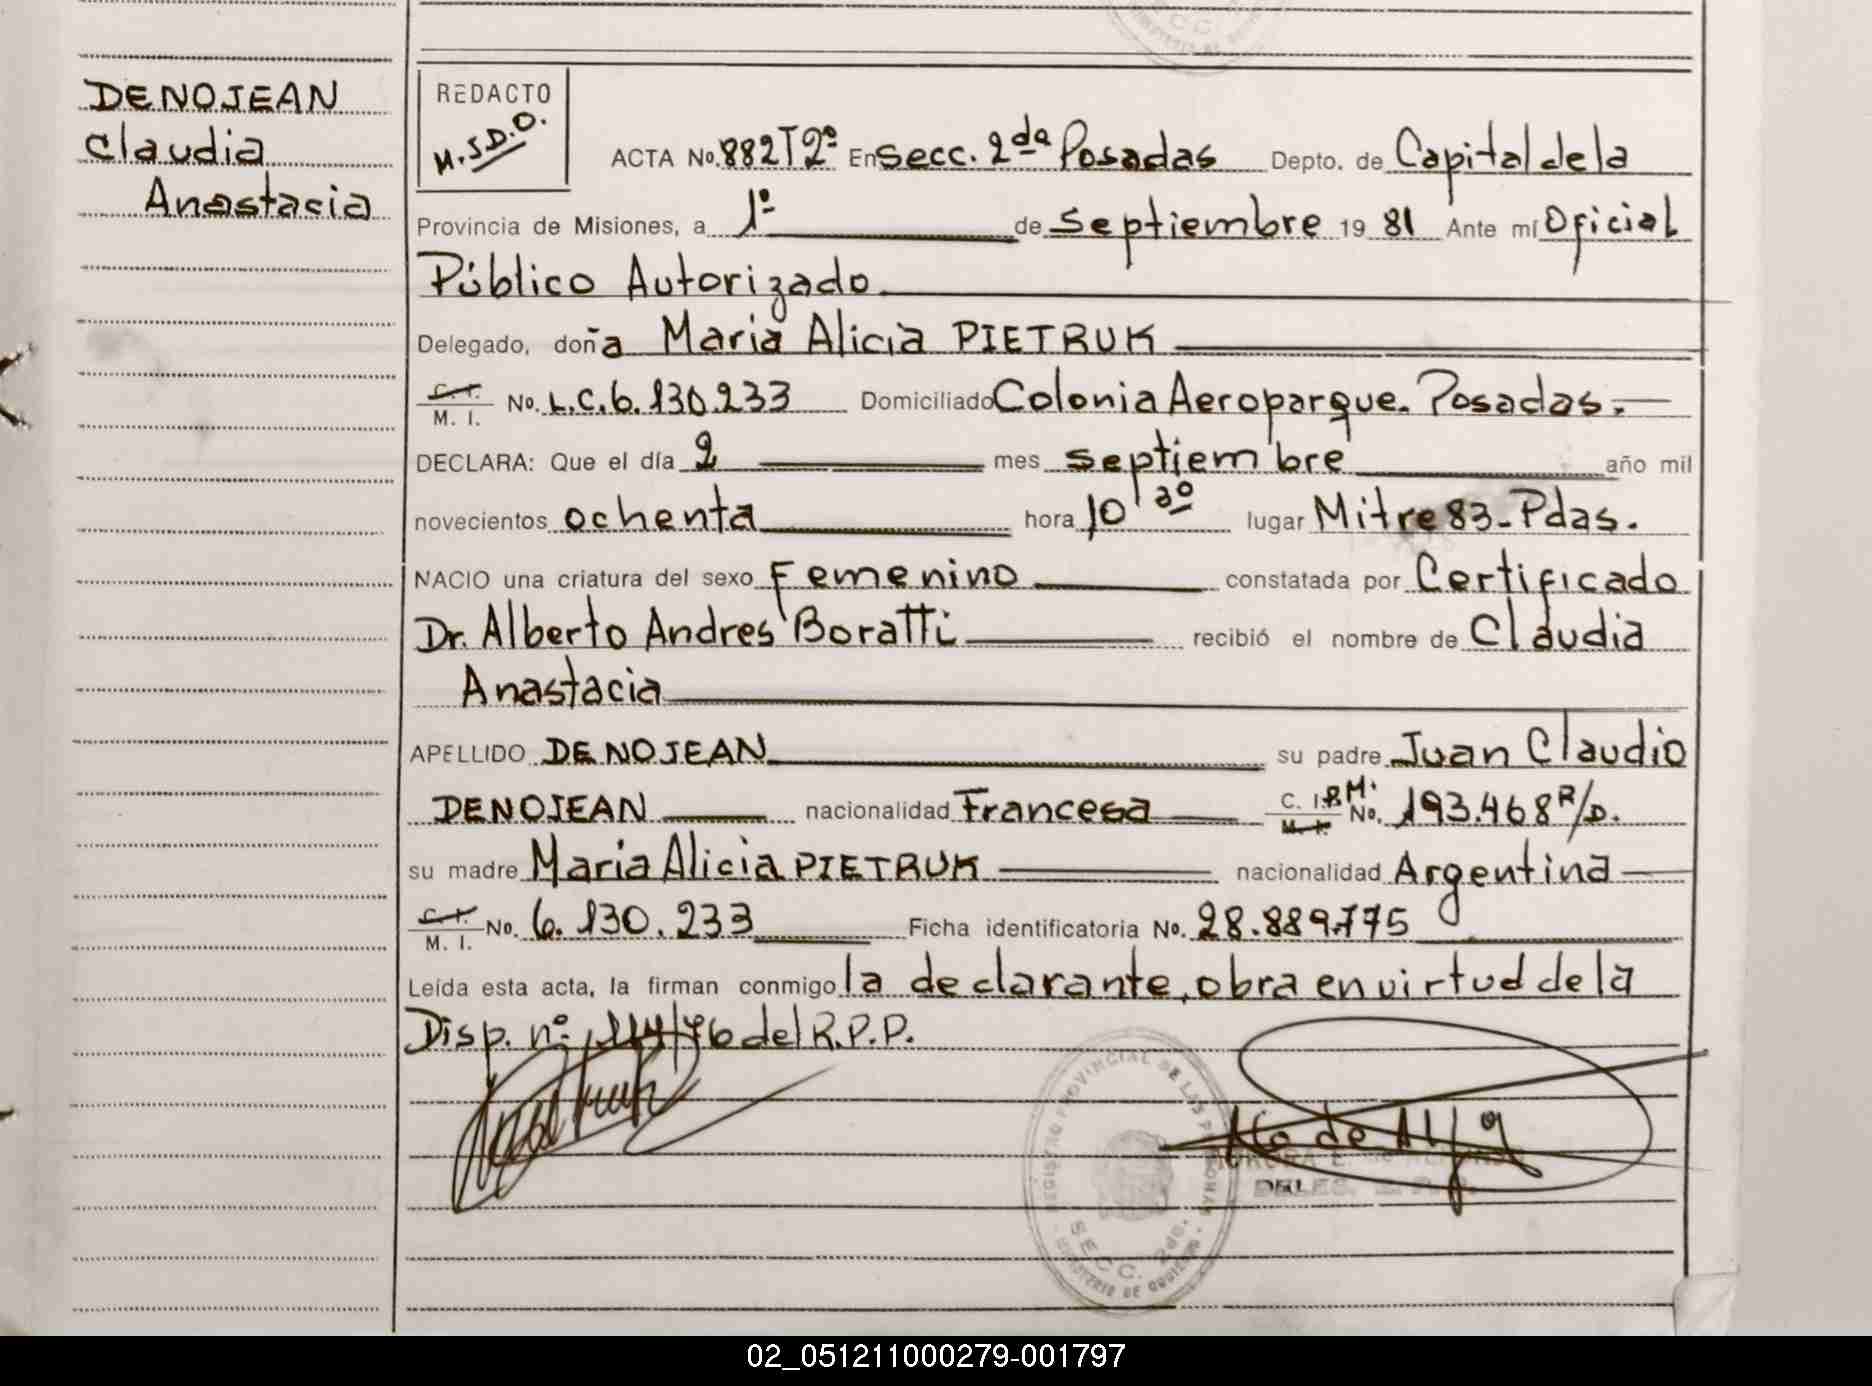 DENOJEAN
Claudia
Anastacia
REDACTO
M.SD.O.
ACTA No. 882 T 2º En Secc. 2da Posadas Depto. de Capital de la
Provincia de Misiones, a 1º de Septiembre 19 81 Ante mí Oficial
Público Autorizado
Delegado, doña Maria Alicia PIETRUK
C. I.
M. I. No. L.C. 6.130.233 Domiciliado Colonia Aeroparque. Posadas.
DECLARA: Que el día 2 mes septiembre año mil
novecientos ochenta hora 10 lugar Mitre 83-Pdas.
NACIO una criatura del sexo Femenino constatada por Certificado
Dr. Alberto Andres Boratti recibió el nombre de Claudia
Anastacia
APELLIDO DENOJEAN su padre Juan Claudio
DENOJEAN nacionalidad Francesa C. I. M. No. 193.468 R/D.
M. I.
su madre Maria Alicia PIETRUK nacionalidad Argentina
C. I.
M. I. No. 6.130.233 Ficha identificatoria No. 28.889.775
Leída esta acta, la firman conmigo la declarante, obra en virtud de la
Disp. nº del R.P.P.
REGISTRO PROVINCIAL DE LAS PERSONAS
SECC. 2da.
MINISTERIO DE GOBIERNO
02_051211000279-001797